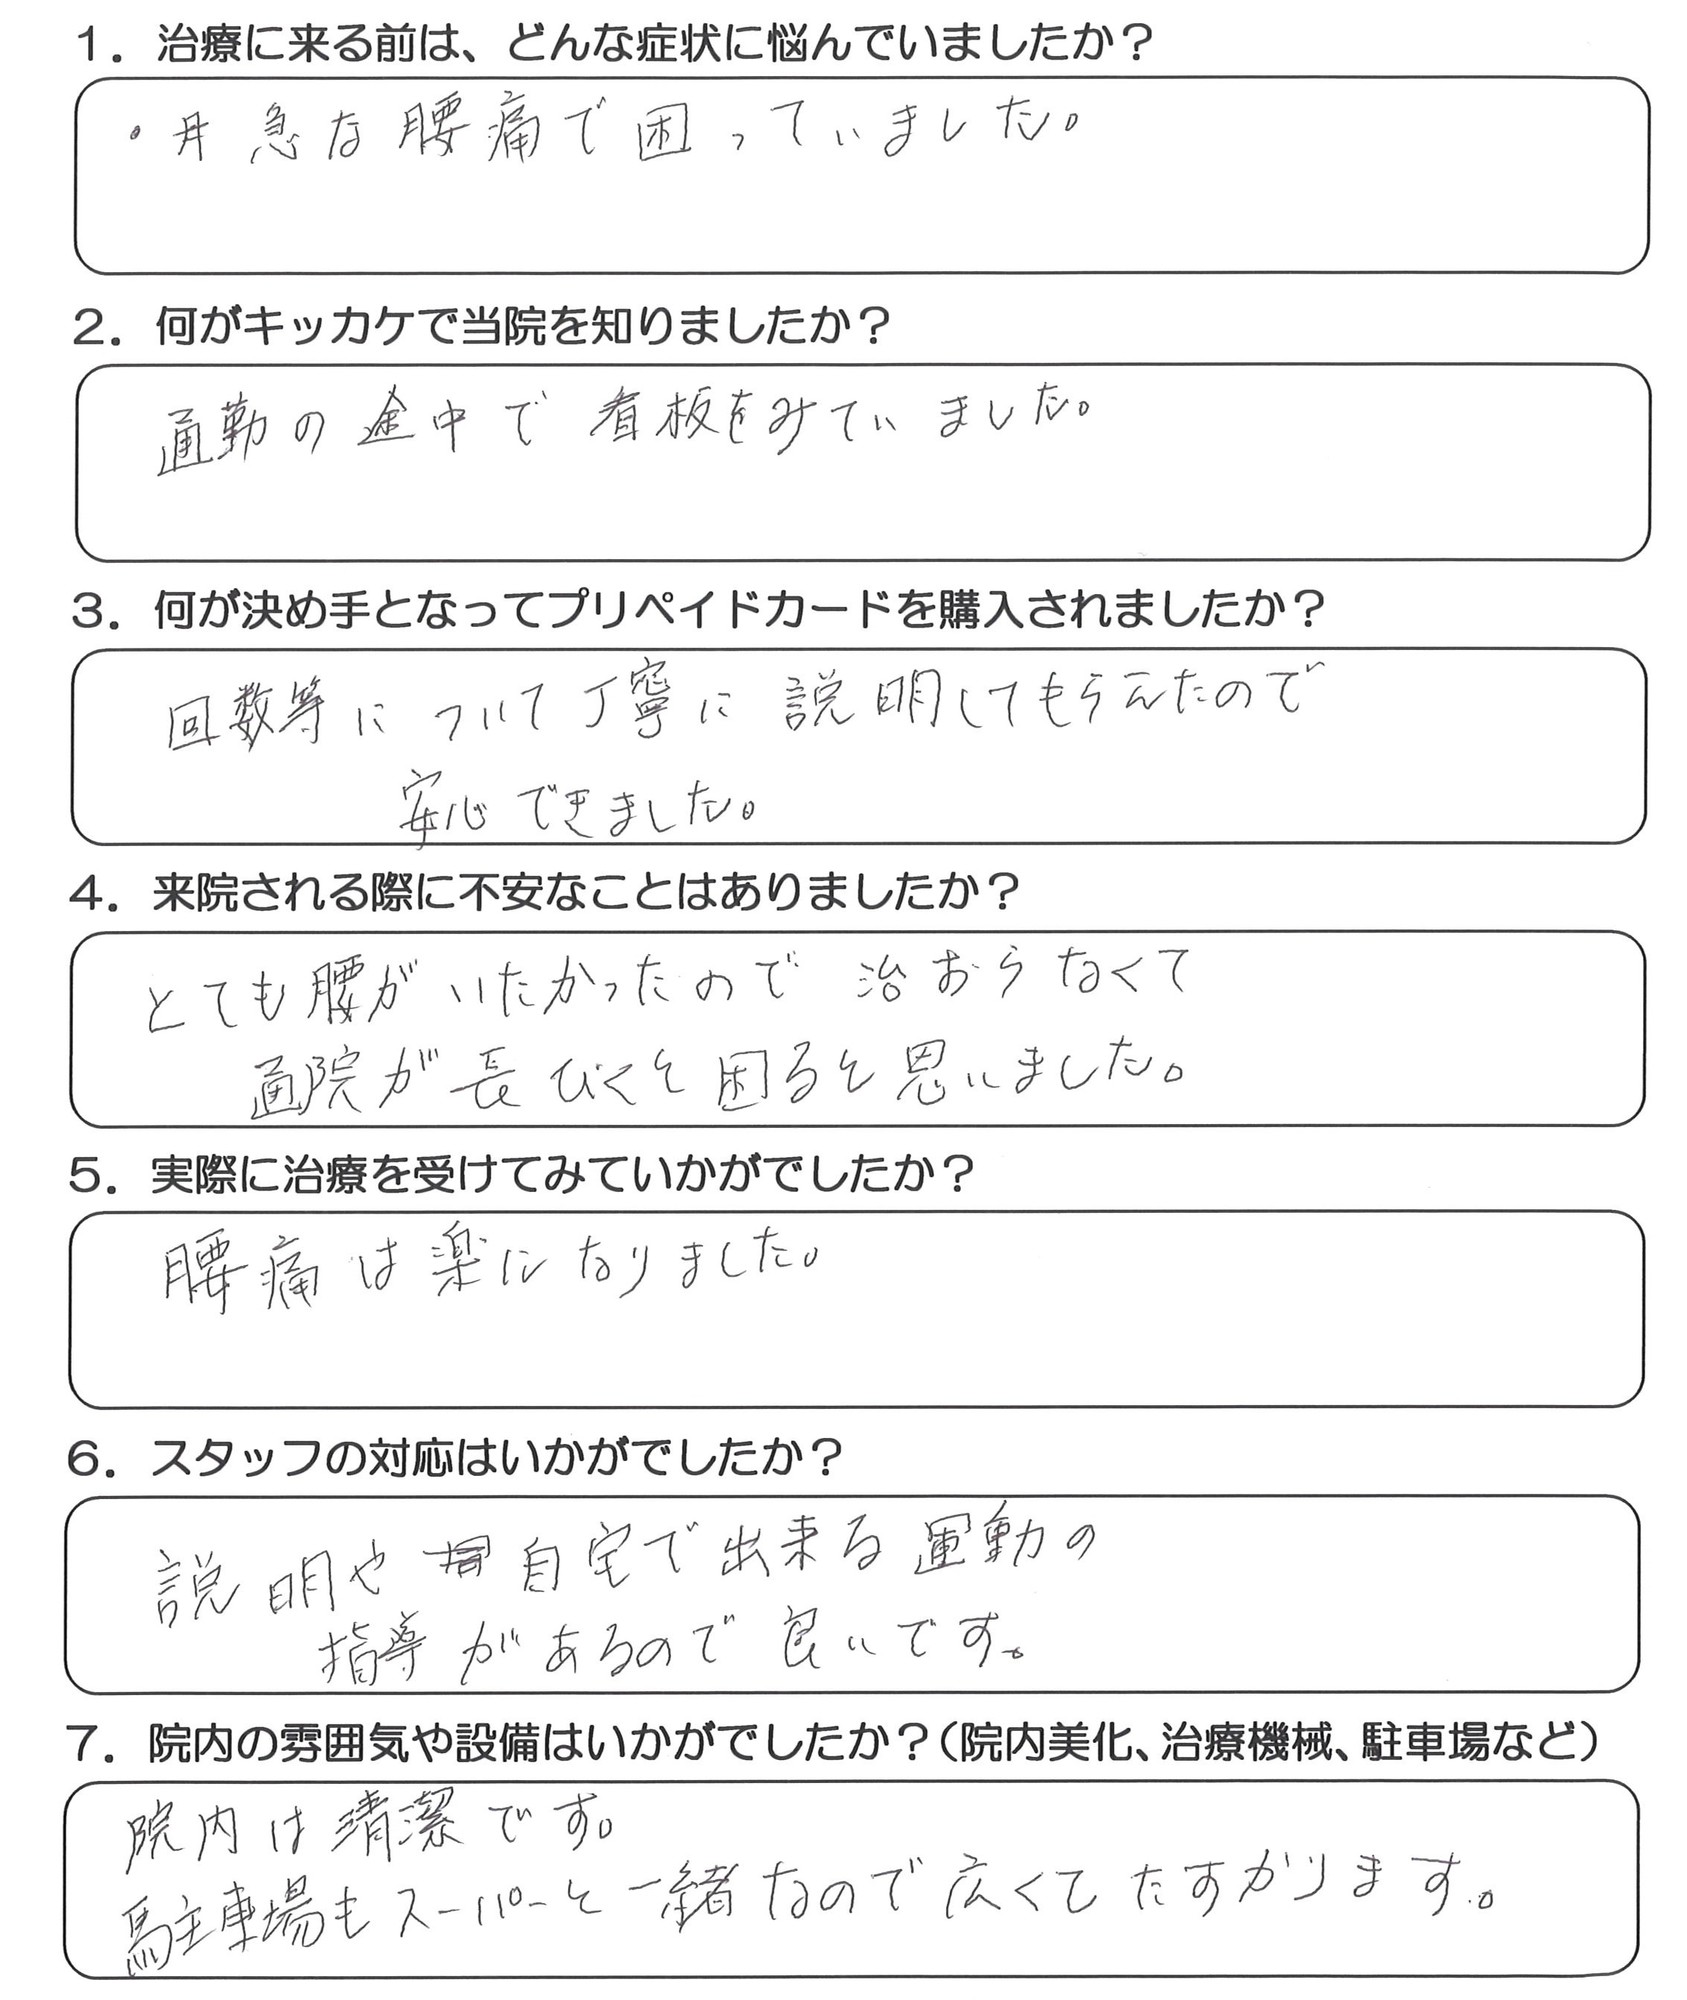 1．治療に来る前は、どんな症状に悩んでいましたか？
・急な腰痛で困っていました。
2．何がキッカケで当院を知りましたか？
通勤の途中で看板をみていました。
3．何が決め手となってプリペイドカードを購入されましたか？
回数等について丁寧に説明してもらえたので
安心できました。
4．来院される際に不安なことはありましたか？
とても腰がいたかったので治おらなくて
通院が長びくと困ると思いました。
5．実際に治療を受けてみていかがでしたか？
腰痛は楽になりました。
6．スタッフの対応はいかがでしたか？
説明や自宅で出来る運動の
指導があるので良いです。
7．院内の雰囲気や設備はいかがでしたか？（院内美化、治療機械、駐車場など）
院内は清潔です。
駐車場もスーパーと一緒なので広くてたすかります。